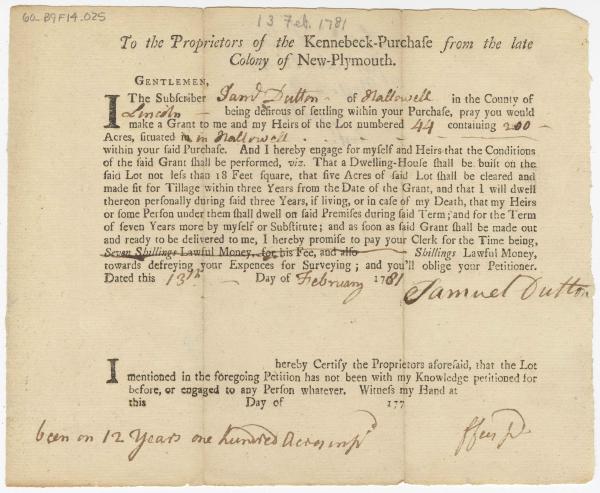 60_B9F14.025
13 Feb. 1781
To the Proprietors of the Kennebeck-Purchaſe from the late
Colony of New-Plymouth.
GENTLEMEN,
The Subſcriber Samˡ Dutton of Hallowell in the County of
Lincoln being deſirous of ſettling within your Purchaſe, pray you would
make a Grant to me and my Heirs of the Lot numbered 44 containing 200
Acres, ſituated in in Hallowell
within your ſaid Purchaſe. And I hereby engage for myſelf and Heirs that the Conditions
of the ſaid Grant ſhall be performed, viz. That a Dwelling-Houſe ſhall be built on the
ſaid Lot not leſs than 18 Feet ſquare, that five Acres of ſaid Lot ſhall be cleared and
made fit for Tillage within three Years from the Date of the Grant, and that I will dwell
thereon perſonally during ſaid three Years, if living, or in caſe of my Death, that my Heirs
or ſome Perſon under them ſhall dwell on ſaid Premiſes during ſaid Term; and for the Term
of ſeven Years more by myſelf or Subſtitute; and as ſoon as ſaid Grant ſhall be made out
and ready to be delivered to me, I hereby promiſe to pay your Clerk for the Time being,
Seven Shillings Lawful Money, for his Fee, and alſo Shillings Lawful Money,
towards defreying your Expences for Surveying; and you'll oblige your Petitioner.
Dated this 13th Day of February 1781
Samuel Dutton
I hereby Certify the Proprietors aforeſaid, that the Lot
mentioned in the foregoing Petition has not been with my Knowledge petitioned for
before, or engaged to any Perſon whatever. Witneſs my Hand at
this Day of 177
been on 12 Years one hundred Acres